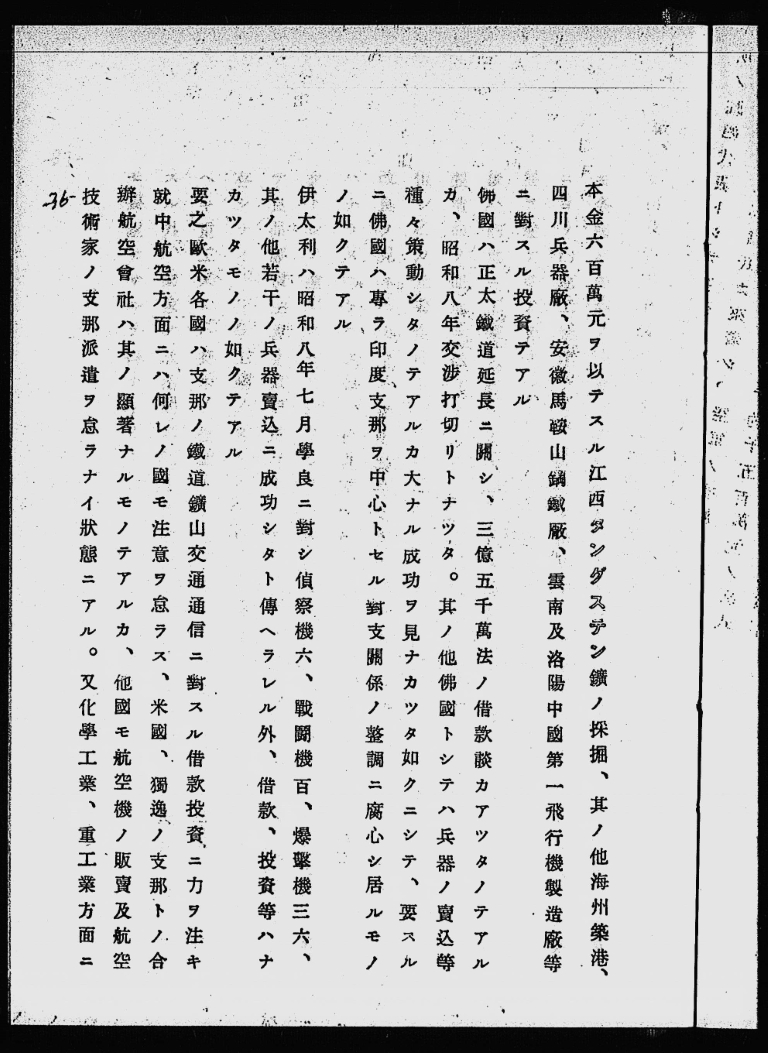 本金六百萬元ヲ以テスル江西タングステン鑛ノ採掘、其ノ他海州築港、
四川兵器廠、安徽馬鞍山鋼鐵廠、雲南及洛陽中國第一飛行機製造廠等
ニ對スル投資テアル
佛國ハ正太鐵道延長ニ關シ、三億五千萬法ノ借款談カアツタノテアル
カ、昭和八年交渉打切リトナツタ。其ノ他佛國トシテハ兵器ノ賣込等
種々策動シタノテアルカ大ナル成功ヲ見ナカツタ如クニシテ、要スル
ニ佛國ハ專ラ印度支那ヲ中心トセル對支關係ノ整調ニ腐心シ居ルモノ
ノ如クテアル
伊太利ハ昭和八年七月學良ニ對シ偵察機六、戰鬪機百、爆擊機三六、
其ノ他若干ノ兵器賣込ニ成功シタト傳ヘラレル外、借款、投資等ハナ
カツタモノノ如クテアル
要之歐米各國ハ支那ノ鐵道鑛山交通通信ニ對スル借款投資ニ力ヲ注キ
就中航空方面ニハ何レノ國モ注意ヲ怠ラス、米國、獨逸ノ支那トノ合
辦航空會社ハ其ノ顯著ナルモノテアルカ、他國モ航空機ノ販賣及航空
技術家ノ支那派遣ヲ怠ラナイ狀態ニアル。又化學工業、重工業方面ニ
-36-